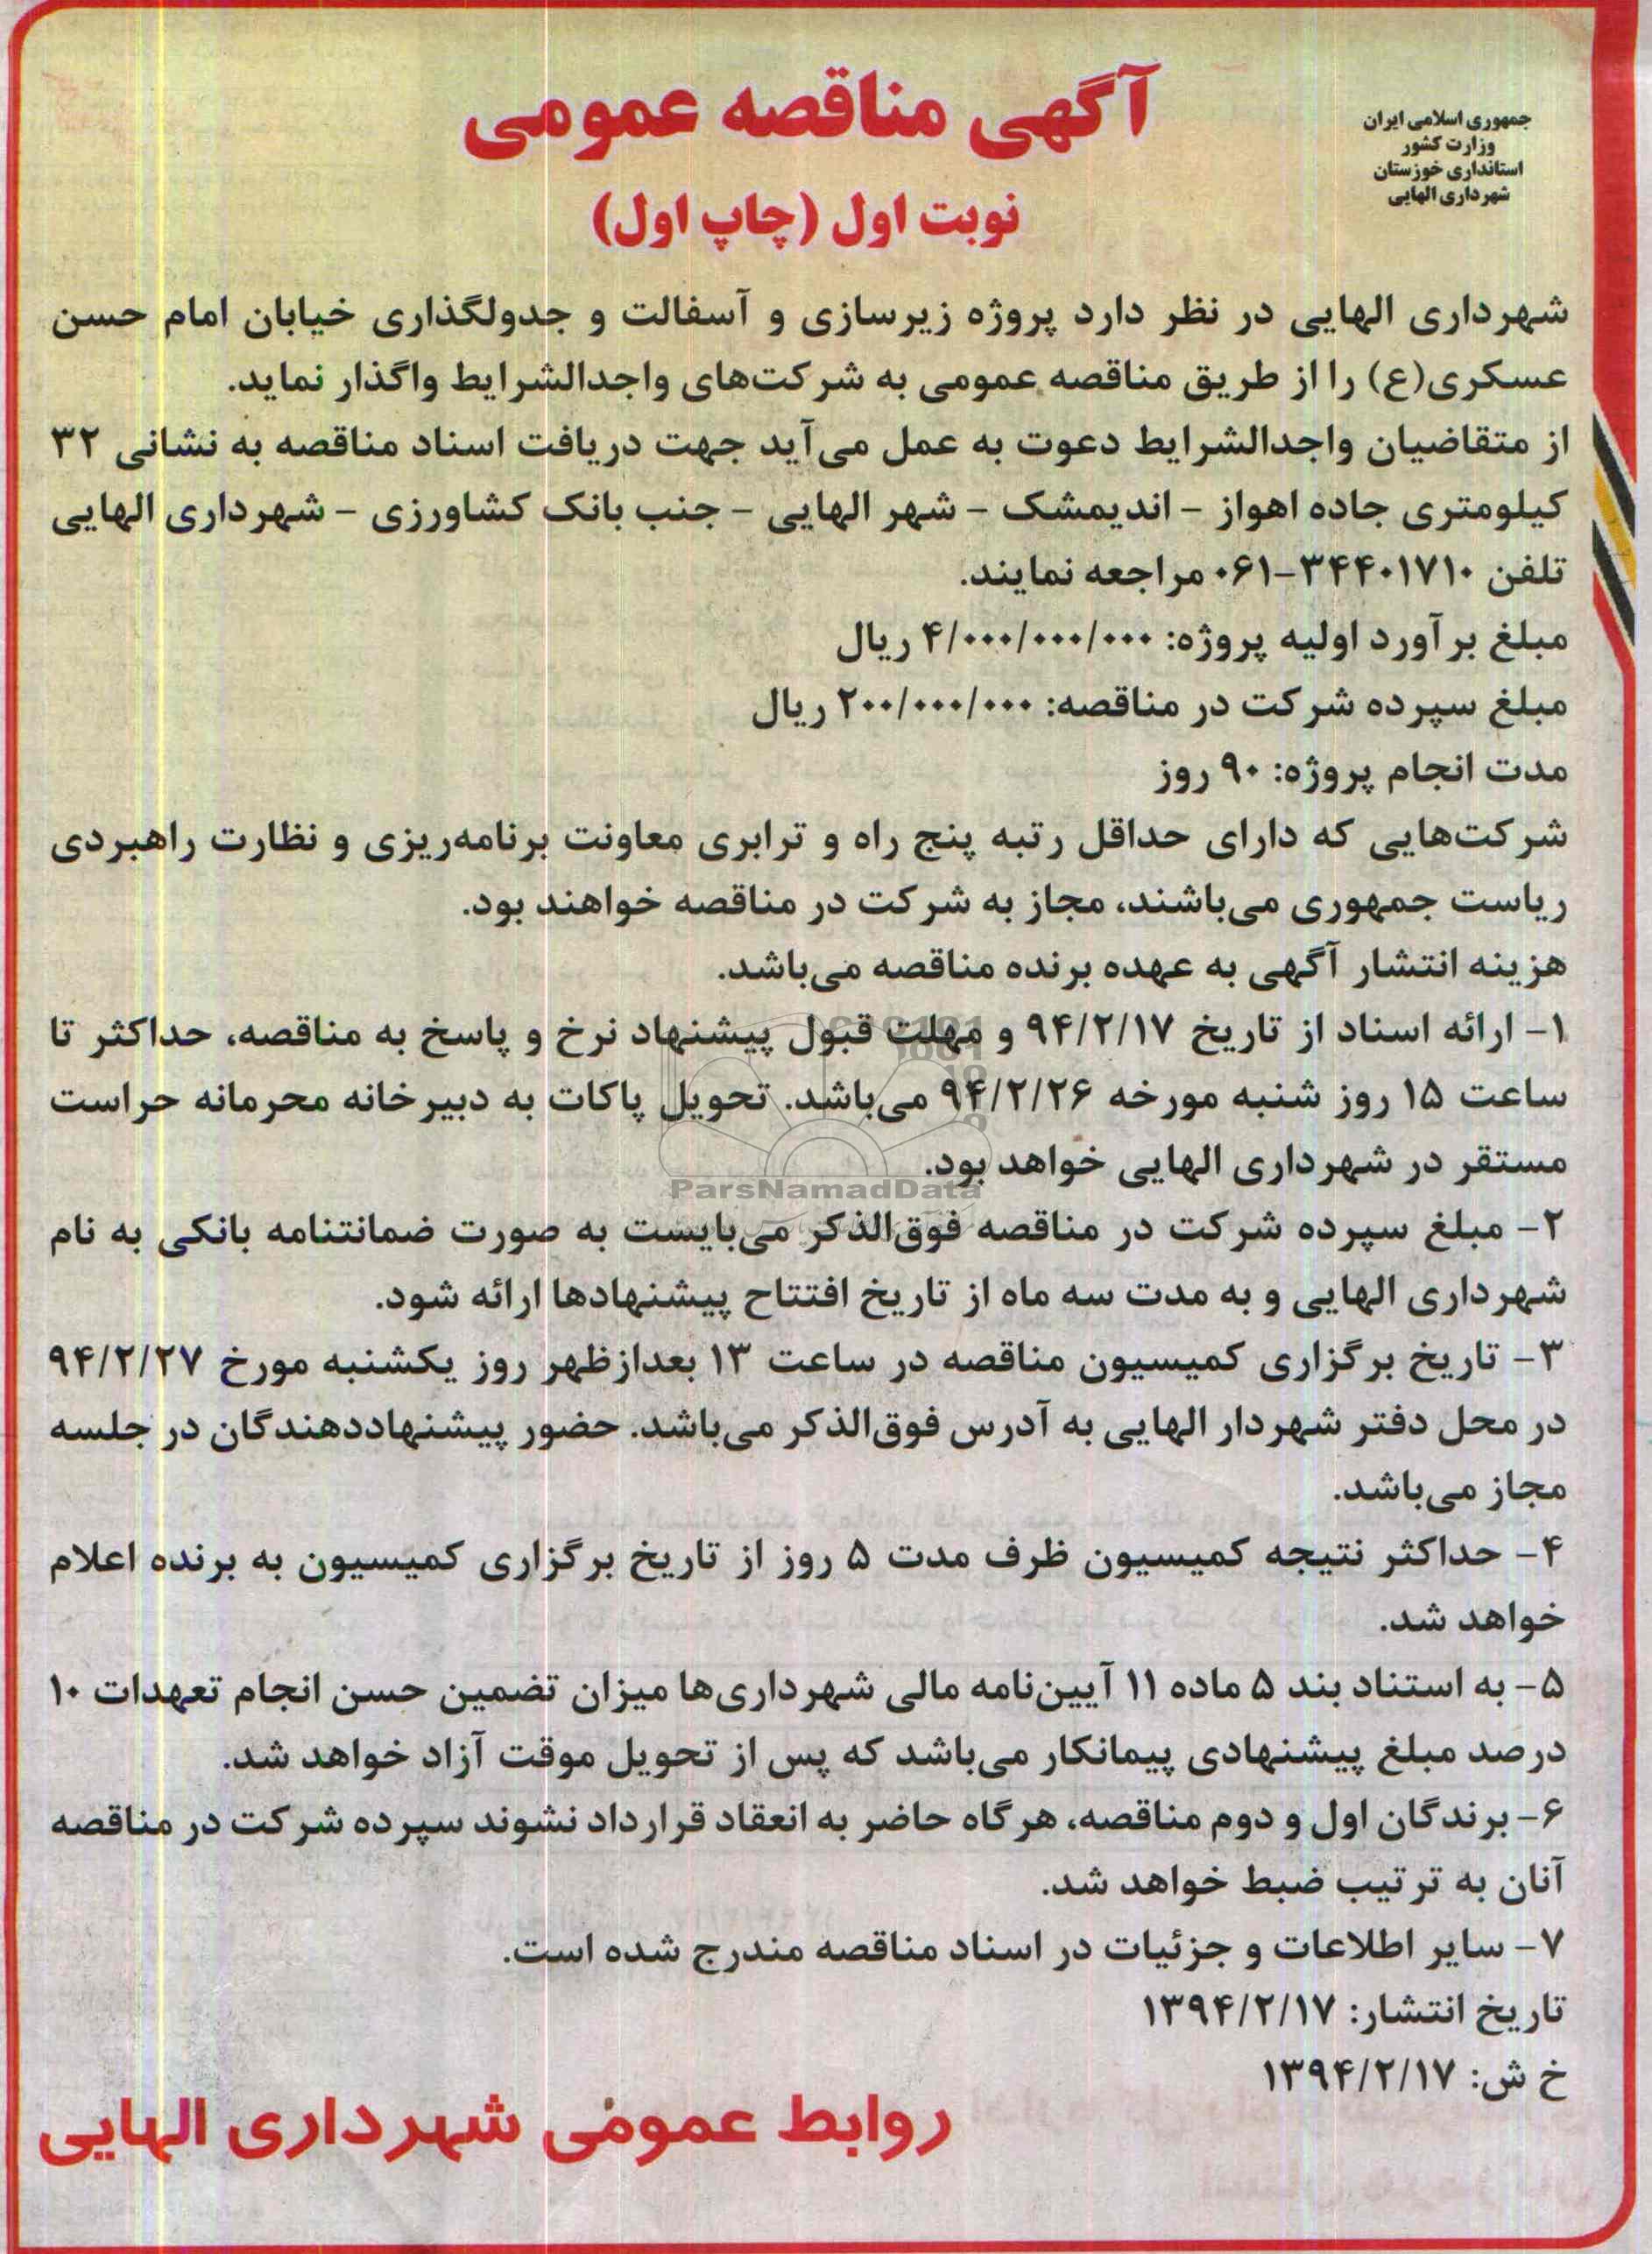 جمهوری اسلامی ایران
وزارت کشور
استانداری خوزستان
شهرداری الهایی
آگهی مناقصه عمومی
نوبت اول (چاپ اول)
شهرداری الهایی در نظر دارد پروژه زیرسازی و آسفالت و جدولگذاری خیابان امام حسن
عسکری(ع) را از طریق مناقصه عمومی به شرکت‌های واجدالشرایط واگذار نماید.
از متقاضیان واجدالشرایط دعوت به عمل می‌آید جهت دریافت اسناد مناقصه به نشانی ۳۲
کیلومتری جاده اهواز - اندیمشک - شهر الهایی - جنب بانک کشاورزی - شهرداری الهایی
تلفن ۳۴۴۰۱۷۱۰-۰۶۱ مراجعه نمایند.
مبلغ برآورد اولیه پروژه: ۴/۰۰۰/۰۰۰/۰۰۰ ریال
مبلغ سپرده شرکت در مناقصه: ۲۰۰/۰۰۰/۰۰۰ ریال
مدت انجام پروژه: ۹۰ روز
شرکت‌هایی که دارای حداقل رتبه پنج راه و ترابری معاونت برنامه‌ریزی و نظارت راهبردی
ریاست جمهوری می‌باشند، مجاز به شرکت در مناقصه خواهند بود.
هزینه انتشار آگهی به عهده برنده مناقصه می‌باشد.
۱- ارائه اسناد از تاریخ ۹۴/۲/۱۷ و مهلت قبول پیشنهاد نرخ و پاسخ به مناقصه، حداکثر تا
ساعت ۱۵ روز شنبه مورخه ۹۴/۲/۲۶ می‌باشد. تحویل پاکات به دبیرخانه محرمانه حراست
مستقر در شهرداری الهایی خواهد بود.
ParsNamadData
۲- مبلغ سپرده شرکت در مناقصه فوق‌الذکر می‌بایست به صورت ضمانتنامه بانکی به نام
شهرداری الهایی و به مدت سه ماه از تاریخ افتتاح پیشنهادها ارائه شود.
۳- تاریخ برگزاری کمیسیون مناقصه در ساعت ۱۳ بعدازظهر روز یکشنبه مورخ ۹۴/۲/۲۷
در محل دفتر شهردار الهایی به آدرس فوق‌الذکر می‌باشد. حضور پیشنهاددهندگان در جلسه
مجاز می‌باشد.
۴- حداکثر نتیجه کمیسیون ظرف مدت ۵ روز از تاریخ برگزاری کمیسیون به برنده اعلام
خواهد شد.
۵- به استناد بند ۵ ماده ۱۱ آیین‌نامه مالی شهرداری‌ها میزان تضمین حسن انجام تعهدات ۱۰
درصد مبلغ پیشنهادی پیمانکار می‌باشد که پس از تحویل موقت آزاد خواهد شد.
۶- برندگان اول و دوم مناقصه، هرگاه حاضر به انعقاد قرارداد نشوند سپرده شرکت در مناقصه
آنان به ترتیب ضبط خواهد شد.
۷- سایر اطلاعات و جزئیات در اسناد مناقصه مندرج شده است.
تاریخ انتشار: ۱۳۹۴/۲/۱۷
خ ش: ۱۳۹۴/۲/۱۷
روابط عمومی شهرداری الهایی